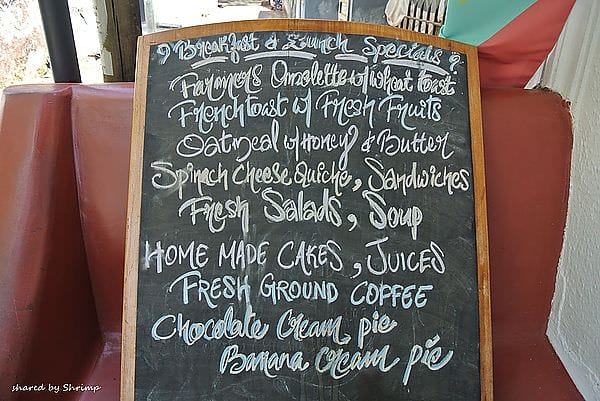 Breakfast & Lunch Specials
Farmers Omelette w/ wheat toast
French toast w/ Fresh Fruits
Oatmeal w/ Honey & Butter
Spinach Cheese Quiche, Sandwiches
Fresh Salads, Soup
HOME MADE CAKES, JUICES
FRESH GROUND COFFEE
Chocolate Cream pie
Banana cream pie
shared by Shrimp